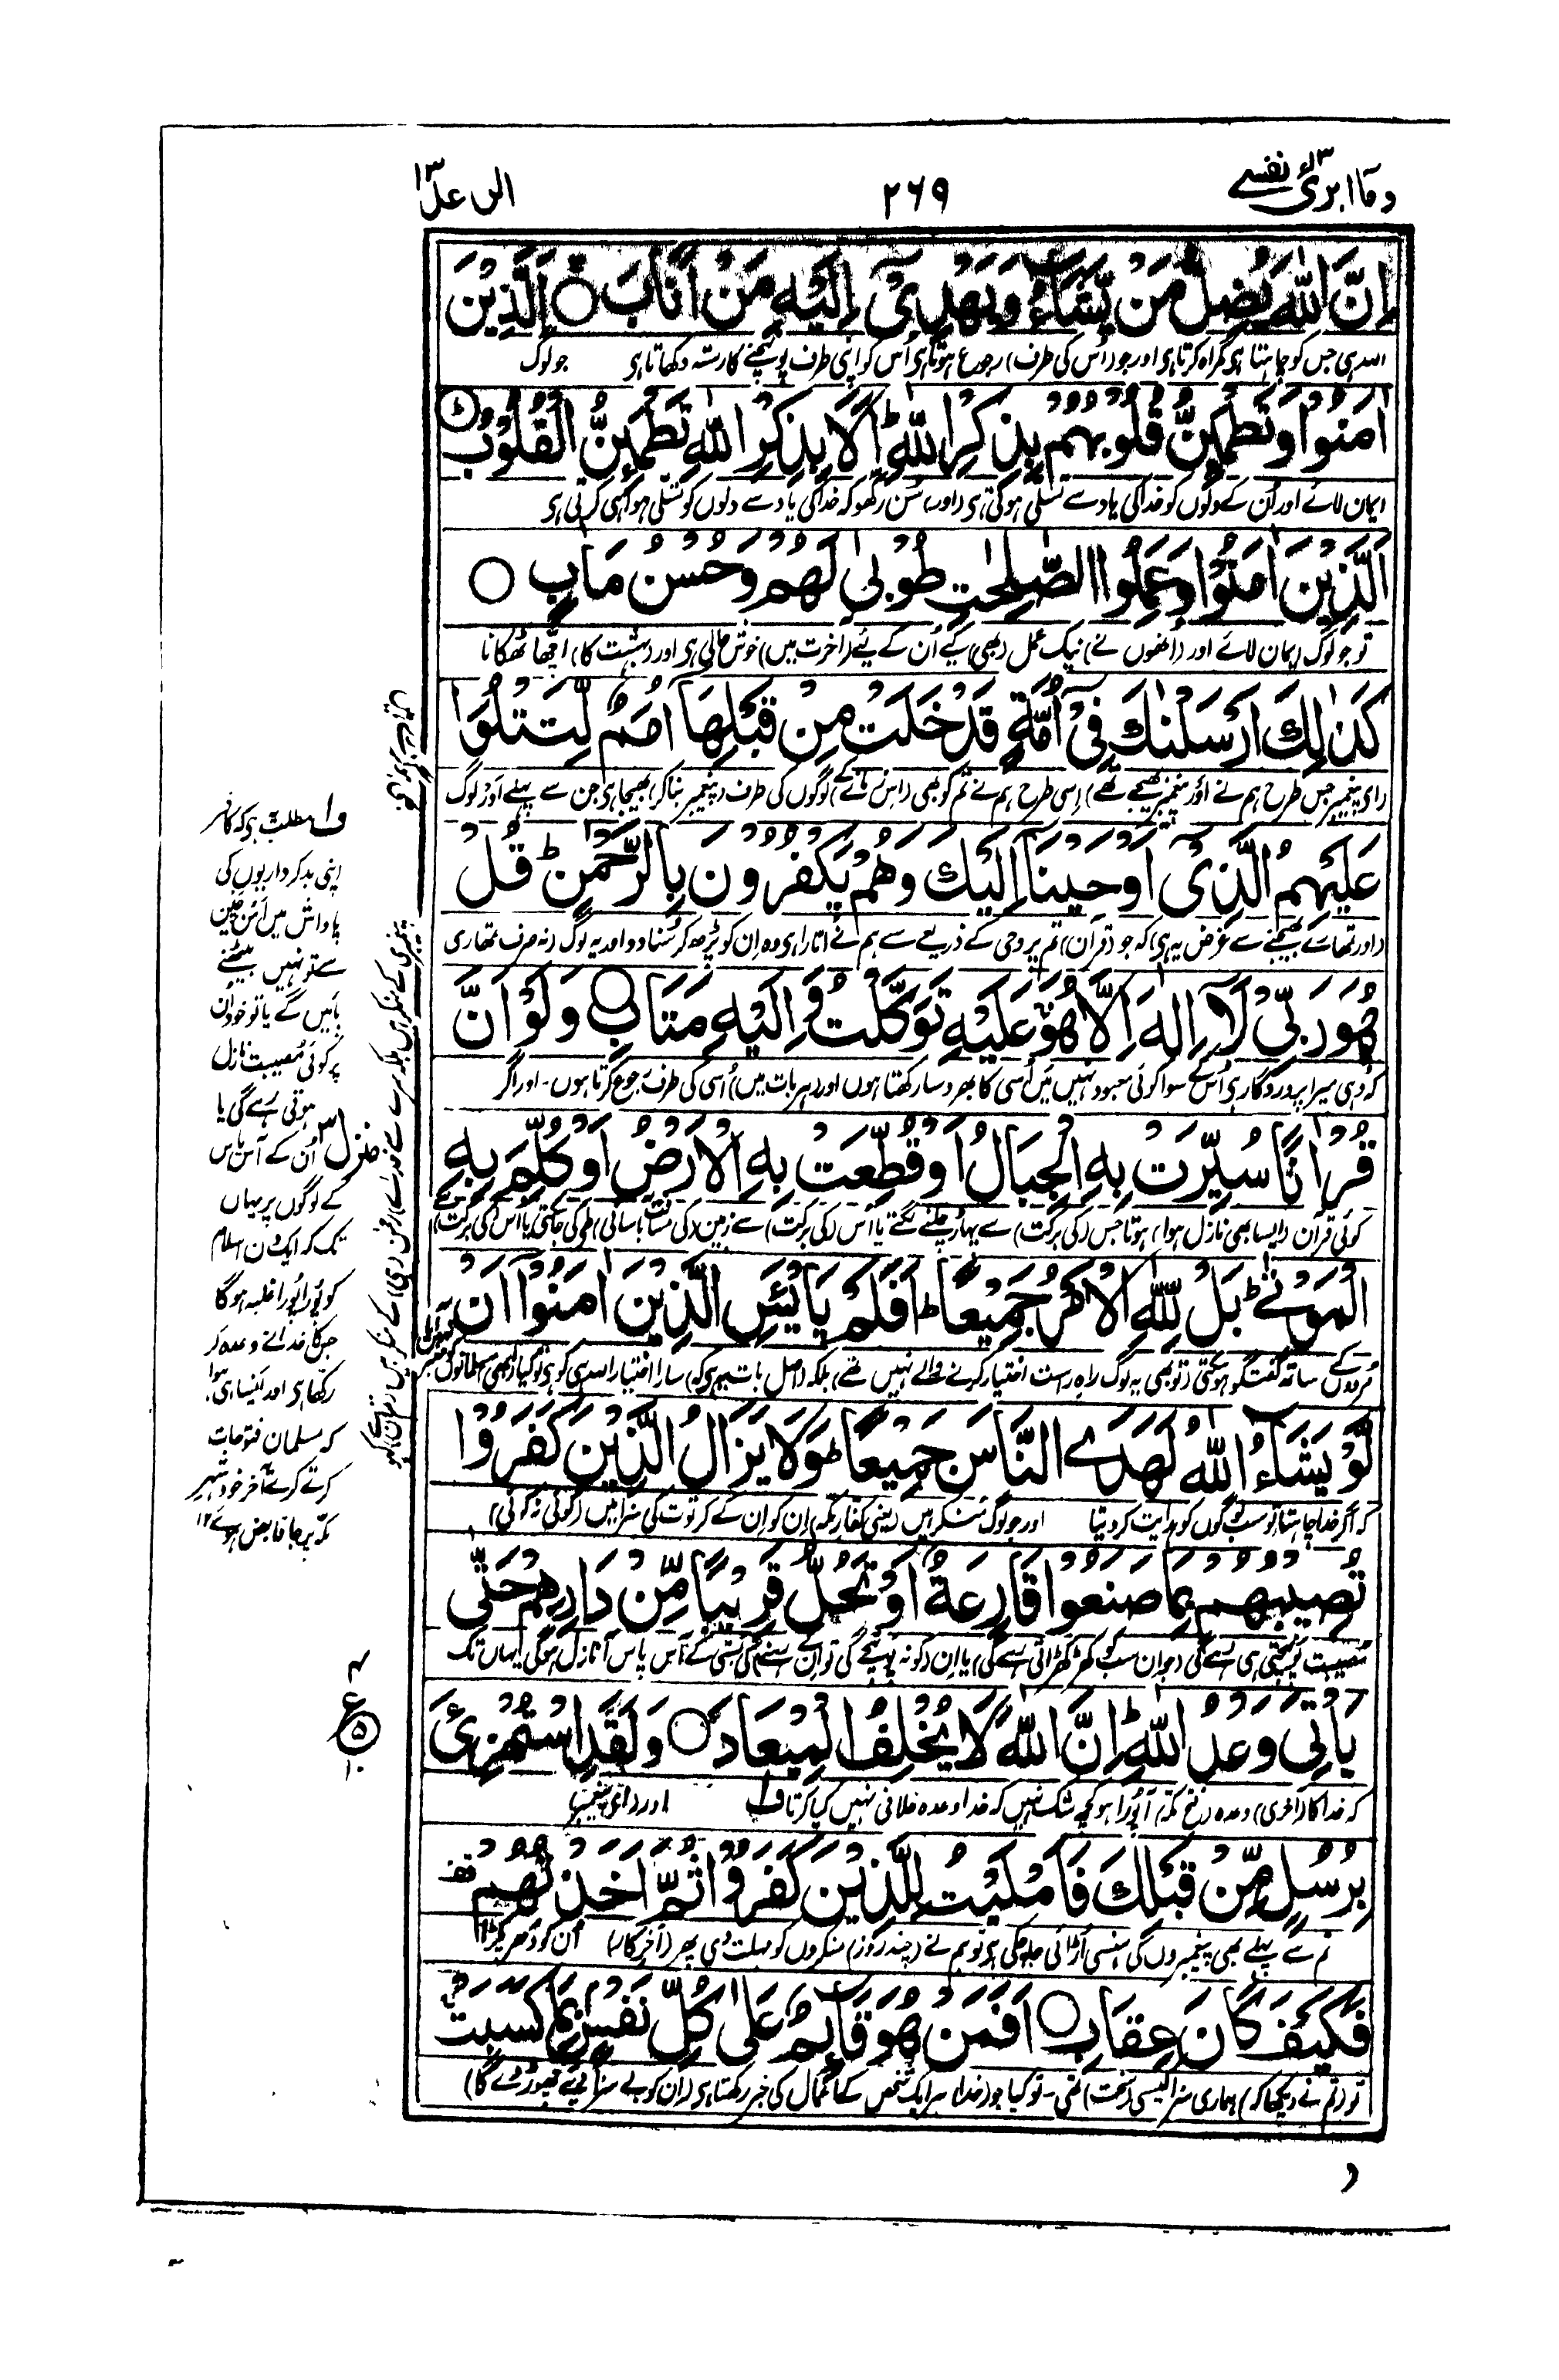 وما ابرئ نفسی ۱۳
۲۶۹
الرعد ۱۳
اِنَّ اللّٰهَ یُضِلُّ مَنْ یَّشَآءُ وَیَهْدِیْٓ اِلَیْهِ مَنْ اَنَابَ ۝ اَلَّذِیْنَ
اللہ ہی جس کو چاہتا ہی گمراہ کرتا ہی اور جو (اُس کی طرف) رجوع ہوتا ہی اُس کو اپنی طرف پونہچنے کا رستہ دکھاتا ہی جو لوگ
اٰمَنُوْا وَتَطْمَئِنُّ قُلُوْبُهُمْ بِذِكْرِ اللّٰهِ ؕ اَلَا بِذِكْرِ اللّٰهِ تَطْمَئِنُّ الْقُلُوْبُ ۝
ایمان لائے اور اُن کے دلوں کو خدا کی یاد سے تسلی ہوتی ہی (اور) سُن رکھو کہ خدا کی یاد سے دلوں کو تسلی ہوا ہی کرتی ہی
اَلَّذِیْنَ اٰمَنُوْا وَعَمِلُوا الصّٰلِحٰتِ طُوْبٰی لَهُمْ وَحُسْنُ مَاٰبٍ ۝
تو جو لوگ ایمان لائے اور (اُنھوں نے) نیک عمل (بھی) کیے اُن کے لیے (آخرت میں) خوش حالی ہی اور (بہشت کا) اچھا ٹھکانا
كَذٰلِكَ اَرْسَلْنٰكَ فِیْٓ اُمَّةٍ قَدْ خَلَتْ مِنْ قَبْلِهَآ اُمَمٌ لِّتَتْلُوَا
(ای پیغمبر جس طرح ہم نے اَور پیغمبر بھیجے تھے) اِسی طرح ہم نے تم کو بھی (اِس زمانے کے) لوگوں کی طرف (پیغمبر بنا کر) بھیجا ہی جن سے پہلے اَور لوگ
عَلَیْهِمُ الَّذِیْٓ اَوْحَیْنَآ اِلَیْكَ وَهُمْ یَكْفُرُوْنَ بِالرَّحْمٰنِ ؕ قُلْ
(اور تمھارے بھیجنے سے غرض یہ ہی) کہ جو (قرآن) تم پر وحی کے ذریعے سے ہم نے اتارا ہی وہ اِن کو پڑھ کر سُنا دو اور یہ لوگ (نہ صرف تمھاری
هُوَ رَبِّیْ لَآ اِلٰهَ اِلَّا هُوَ ۚ عَلَیْهِ تَوَكَّلْتُ وَ اِلَیْهِ مَتَابِ ۝ وَلَوْ اَنَّ
کہ وہی میرا پروردگار ہی اُس کے سوا کوئی معبود نہیں مَیں اُسی کا بھروسا رکھتا ہوں اور (ہر بات میں) اُسی کی طرف رجوع کرتا ہوں ۔ اور اگر
قُرْاٰنًا سُیِّرَتْ بِهِ الْجِبَالُ اَوْ قُطِّعَتْ بِهِ الْاَرْضُ اَوْ كُلِّمَ بِهِ
کوئی قرآن (ایسا بھی نازل ہوا) ہوتا جس (کی برکت) سے پہاڑ چلنے لگتے یا اُس (کی برکت) سے زمین (کی مسافت بآسانی) طی کی جا سکتی یا اُس (کی برکت) سے
الْمَوْتٰی ؕ بَلْ لِّلّٰهِ الْاَمْرُ جَمِیْعًا ؕ اَفَلَمْ یَایْـَٔسِ الَّذِیْنَ اٰمَنُوْٓا اَنْ
مُردوں کے ساتھ گفتگو ہو سکتی (تو بھی یہ لوگ راہ راست اختیار کرنے والے نہیں تھے) بلکہ (اصل بات یہ ہی کہ) سارا اختیار اللہ ہی کو ہی تو کیا (ابھی) مسلمانوں کو
لَّوْ یَشَآءُ اللّٰهُ لَهَدَی النَّاسَ جَمِیْعًا ؕ وَلَا یَزَالُ الَّذِیْنَ كَفَرُوْا
کہ اگر خدا چاہتا تو سب لوگوں کو ہدایت کر دیتا اور جو لوگ منکر ہیں (یعنی کفار مکہ) اِن کو اِن کے کرتوت کی سزا میں (کوئی نہ کوئی)
تُصِیْبُهُمْ بِمَا صَنَعُوْا قَارِعَةٌ اَوْ تَحُلُّ قَرِیْبًا مِّنْ دَارِهِمْ حَتّٰی
مصیبت پونہچتی ہی رہے گی (جو ان سب کو کھڑکھڑاتی رہے گی) یا اِن (کو نہ پونہچے گی تو اِن) کی بستی کے آس پاس آ نازل ہو گی یہاں تک
یَاْتِیَ وَعْدُ اللّٰهِ ؕ اِنَّ اللّٰهَ لَا یُخْلِفُ الْمِیْعَادَ ۝ وَلَقَدِ اسْتُهْزِئَ
کہ خدا کا (آخری) وعدہ (فتح مکہ) آ پُورا ہو کچھ شک نہیں کہ خدا وعدہ خلافی نہیں کیا کرتا ف۱ اور (ای پیغمبر)
بِرُسُلٍ مِّنْ قَبْلِكَ فَاَمْلَیْتُ لِلَّذِیْنَ كَفَرُوْا ثُمَّ اَخَذْتُهُمْ قف
تم سے پہلے بھی پیغمبروں کی ہنسی اُڑائی جا چکی ہی تو ہم نے (چند روز) منکروں کو مہلت دی پھر (آخر کار) اُن کو دھر پکڑا
فَكَیْفَ كَانَ عِقَابِ ۝ اَفَمَنْ هُوَ قَآئِمٌ عَلٰی كُلِّ نَفْسٍۭ بِمَا كَسَبَتْ ۚ
تو (تم نے دیکھا کہ) ہماری سزا کیسی (سخت) تھی ۔ تو کیا جو (خدا) ہر ایک شخص کے اعمال کی خبر رکھتا ہی (اُن کو بے سزا دیے چھوڑ دے گا)
و
ف۱ مطلب یہ ہی کہ کافر
اپنی بدکرداریوں کی
پاداش میں امن چین
سے تو نہیں بیٹھنے
پائیں گے یا تو خود ان
پر کوئی مصیبت نازل
ہوتی رہے گی یا
اُن کے آس پاس
کے لوگوں پر یہاں
تک کہ ایک دن اسلام
کو پُورا پُورا غلبہ ہو گا
جس کا خدا نے وعدہ کر
رکھا ہی اور ایسا ہی ہوا
کہ مسلمان فتوحات
کرتے کرتے آخر خود شہر
مکہ پر جا قابض ہوئے ۱۲
منزل ۳
ع
۵
۱۰